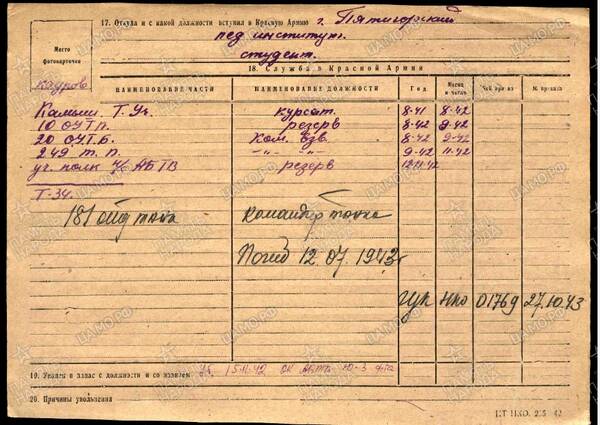 17. Откуда и с какой должности вступил в Красную Армию г. Пятигорский
пед институт.
студент.
Место
фотокарточки
18. Служба в Красной Армии
НАИМЕНОВАНИЕ ЧАСТИ НАИМЕНОВАНИЕ ДОЛЖНОСТИ Год Месяц и число Чей приказ № приказа
Камыш. Т. Уч. курсат. 8-41 8-42
10 ОУТП. резерв 8-42 9-42
20 ОУТБ. Ком. взв. 8-42 9-42
249 т. п. -"- -"- 9-42 11-42
уч. полк АБТВ резерв 12.11.42
Т-34.
181 танк командир танка
Погиб 12.07.1943г
ГУК НКО 01769 27.10.43
19. Уволен в запас с должности и со званием 15.11.42 ОК
20. Причины увольнения